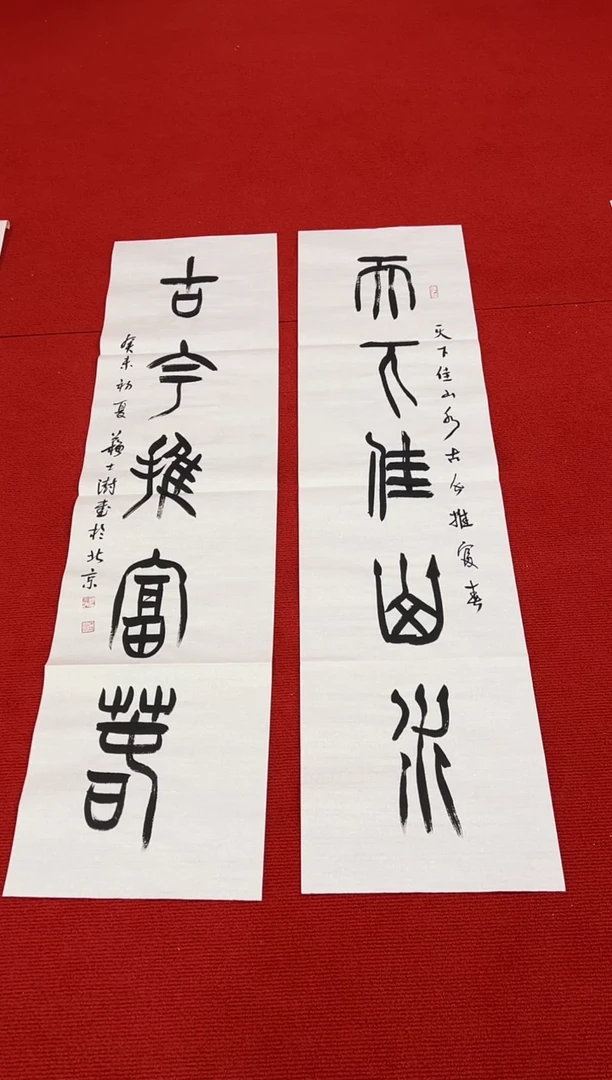 天下佳山水
天下佳山水古今推富春
古今推富春
癸未初夏蘇士澍書於北京